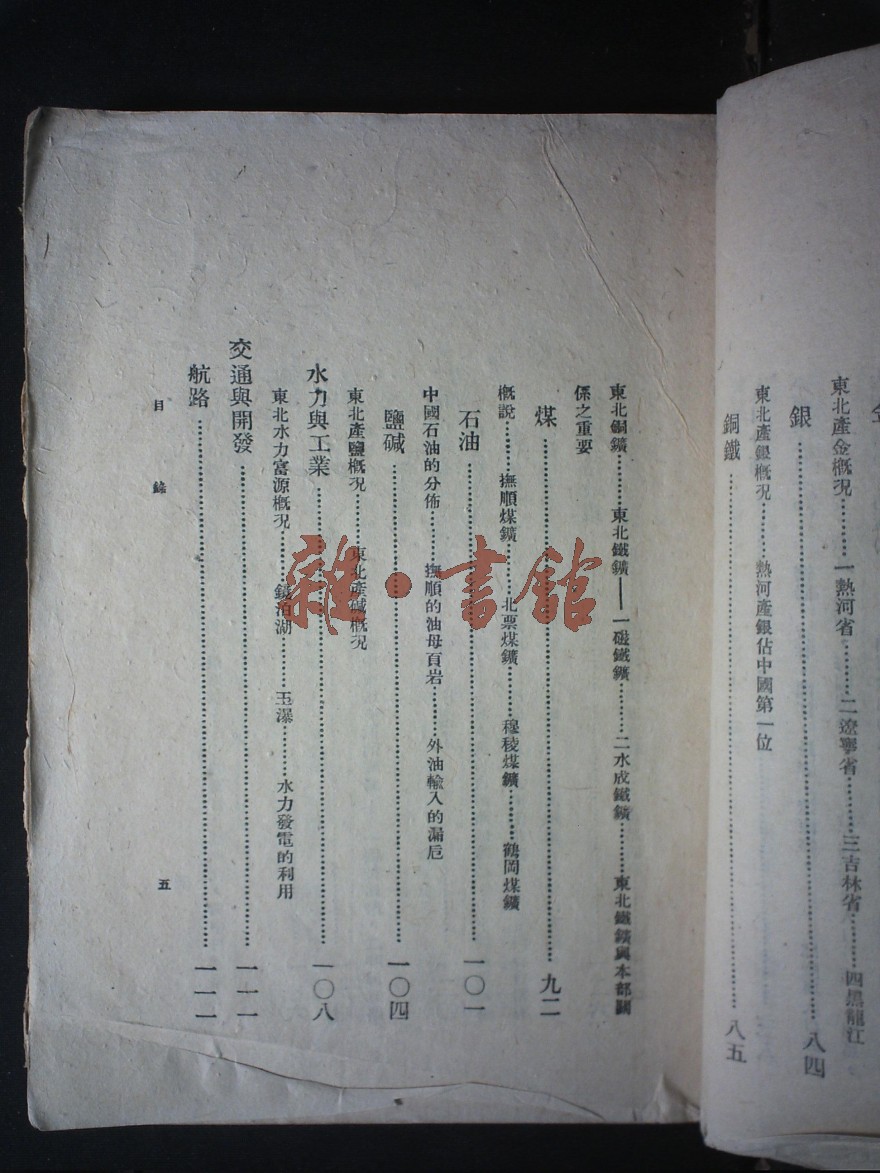 東北產金概況………一熱河省………二遼寧省………三吉林省………四黑龍江
銀………八四
東北產銀概況………熱河產銀佔中國第一位
銅鐵………八五
東北銅鑛………東北鐵鑛——一磁鐵鑛………二水成鐵鑛………東北鐵鑛與本部關
係之重要
煤………九二
概說………撫順煤鑛………北票煤鑛………穆稜煤鑛………鶴岡煤鑛
石油………一〇一
中國石油的分佈………撫順的油母頁岩………外油輸入的漏卮
鹽碱………一〇四
東北產鹽概况………東北產碱概况
水力與工業………一〇八
東北水力富源概况………鏡泊湖………玉瀑………水力發電的利用
交通與開發………一一一
航路………一一一
目錄
五
雜·書館